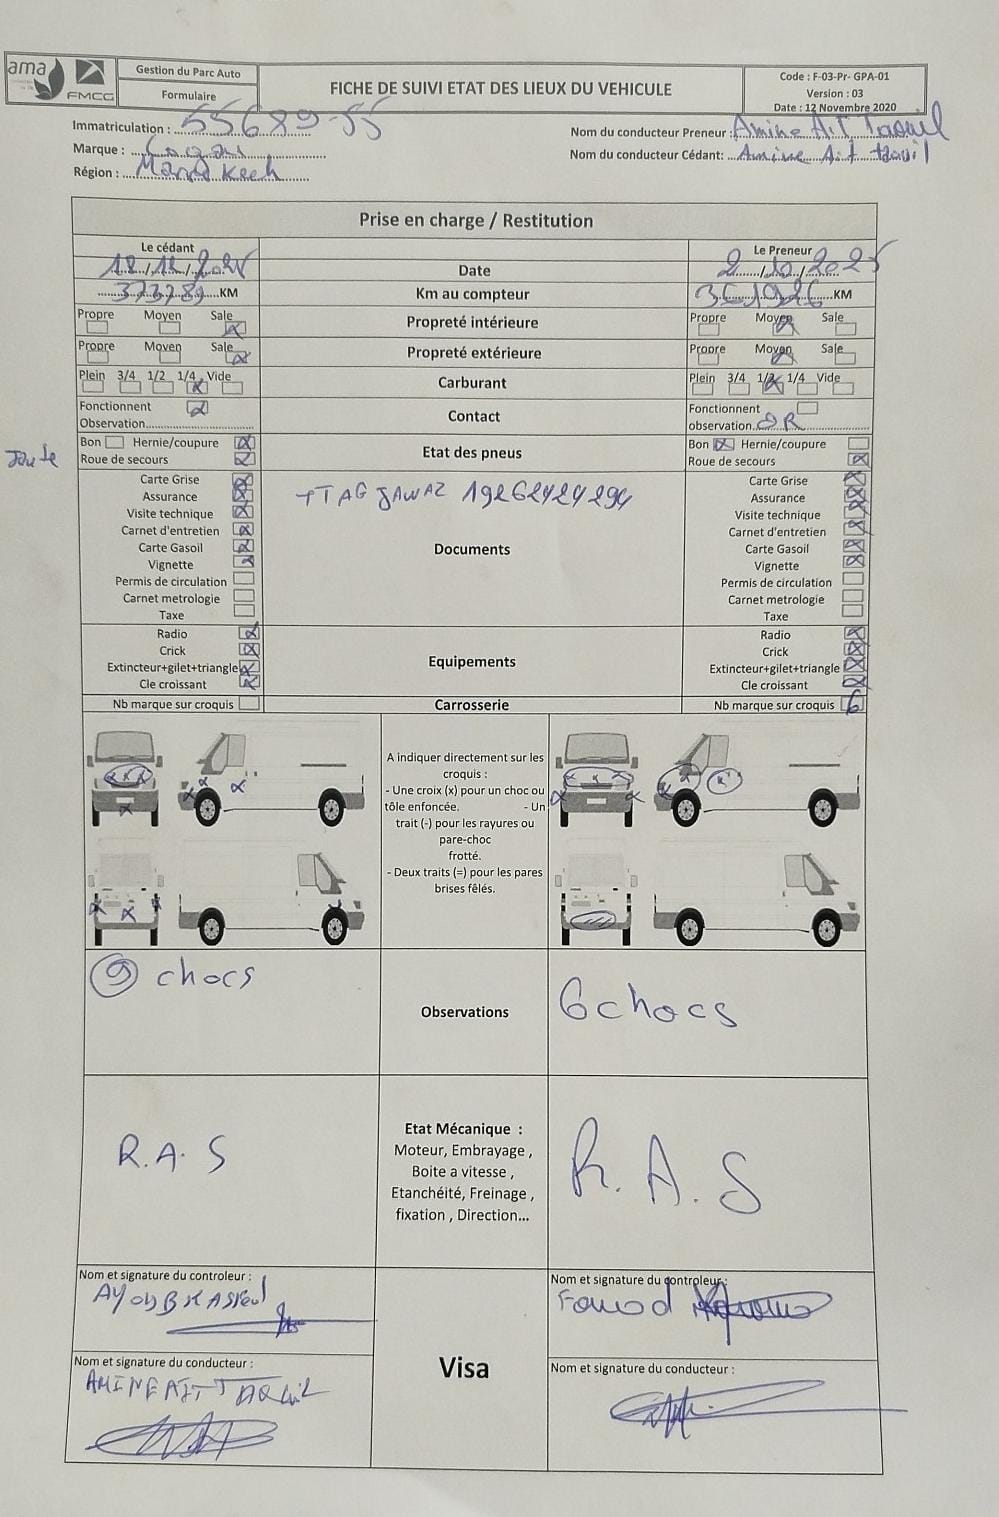 ama
FMCG
Gestion du Parc Auto
Formulaire
FICHE DE SUIVI ETAT DES LIEUX DU VEHICULE
Code : F-03-Pr- GPA-01
Version : 03
Date : 12 Novembre 2020
Immatriculation : 55689-55
Marque :
Région : Marrakech
Nom du conducteur Preneur : Amine Ait Taouil
Nom du conducteur Cédant: Amine Ait taouil
Prise en charge / Restitution
Le cédant
Le Preneur
18/12/2025 Date 2/12/2025
373789 KM Km au compteur 361926 KM
Propre Moyen Sale Propreté intérieure Propre Moyen Sale
Propre Moyen Sale Propreté extérieure Propre Moyen Sale
Plein 3/4 1/2 1/4 Vide Carburant Plein 3/4 1/2 1/4 Vide
Fonctionnent Contact Fonctionnent
Observation observation. OR
Bon Hernie/coupure Etat des pneus Bon Hernie/coupure
Roue de secours Roue de secours
Carte Grise Carte Grise
+TAG JAWAZ 19262424294
Assurance Assurance
Visite technique Visite technique
Carnet d'entretien Carnet d'entretien
Carte Gasoil Documents Carte Gasoil
Vignette Vignette
Permis de circulation Permis de circulation
Carnet metrologie Carnet metrologie
Taxe Taxe
Radio Radio
Crick Equipements Crick
Extincteur+gilet+triangle Extincteur+gilet+triangle
Cle croissant Cle croissant
Nb marque sur croquis Carrosserie Nb marque sur croquis 6
A indiquer directement sur les
croquis :
- Une croix (x) pour un choc ou
tôle enfoncée. - Un
trait (-) pour les rayures ou
pare-choc
frotté.
- Deux traits (=) pour les pares
brises fêlés.
9 chocs Observations 6 chocs
Etat Mécanique :
Moteur, Embrayage ,
Boite a vitesse ,
Etanchéité, Freinage ,
fixation , Direction...
R.A.S R.A.S
Nom et signature du controleur : Nom et signature du controleur :
Visa
Nom et signature du conducteur : Nom et signature du conducteur :
AMINE AIT TAOUIL